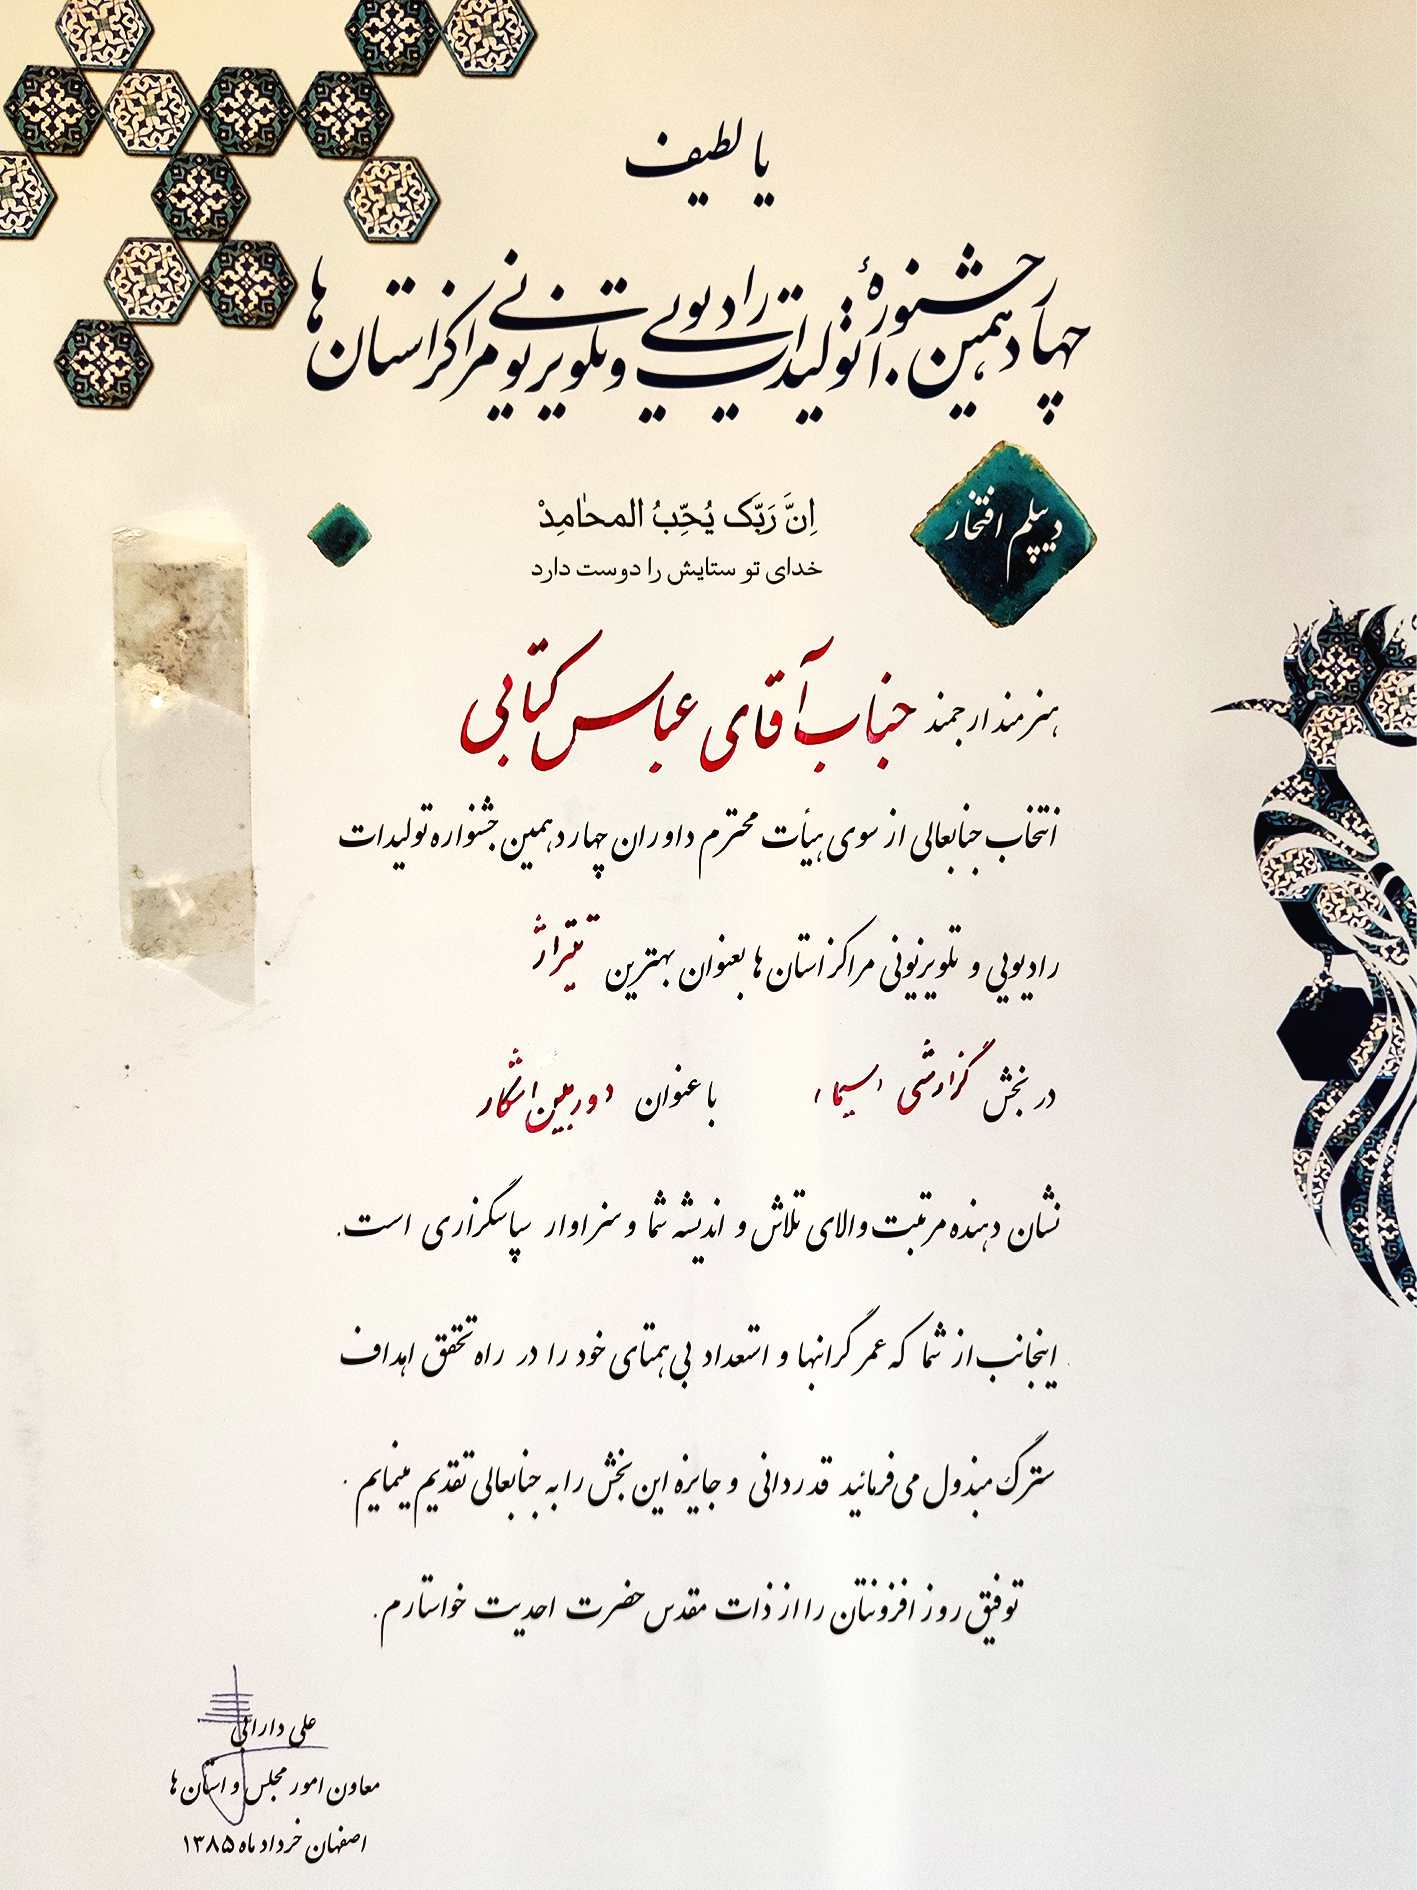 یا لطیف
چهاردهمین جشنوارهٔ تولیدات رادیویی و تلویزیونی مراکز استان ها
دیپلم افتخار
اِنَّ رَبَّک یُحِّبُ المحٰامِدْ
خدای تو ستایش را دوست دارد
هنرمند ارجمند جناب آقای عباس کتابی
انتخاب جنابعالی از سوی هیأت محترم داوران چهاردهمین جشنواره تولیدات
رادیویی و تلویزیونی مراکز استان ها بعنوان بهترین تیتراژ
در بخش گزارشی "سیما" با عنوان دوربین اشکار
نشان دهنده مرتبت والای تلاش و اندیشه شما و سزاوار سپاسگزاری است.
اینجانب از شما که عمر گرانبها و استعداد بی همتای خود را در راه تحقق اهداف
سترگ مبذول می فرمائید قدردانی و جایزه این بخش را به جنابعالی تقدیم مینمایم.
توفیق روز افزونتان را از ذات مقدس حضرت احدیت خواستارم.
علی دارائی
معاون امور مجلس و استان ها
اصفهان خرداد ماه ۱۳۸۵